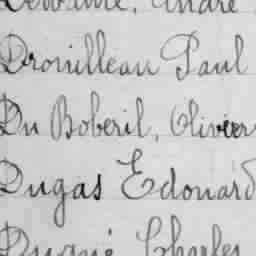 André
Drouilleau Paul
Du Boberil, Olivier
Dugas Edouard
Charles